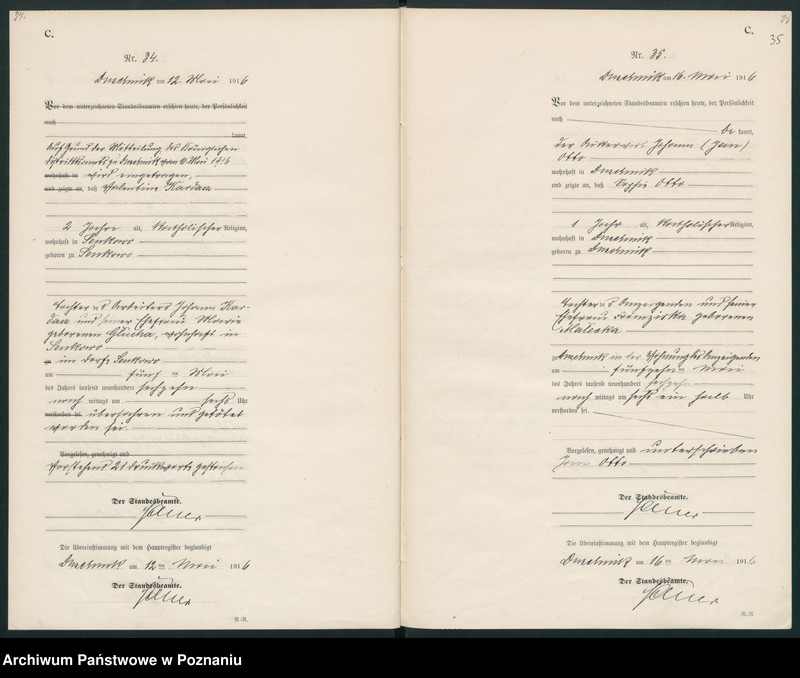 34.
C.
Nr. 34.
am 12. Mai 1916
Vor dem unterzeichneten Standesbeamten erschien heute, der Persönlichkeit
nach
kannt,
Auf Grund der Mitteilung des Königlichen
Distriktsamts zu vom 10. Mai 1916
wohnhaft in wird eingetragen,
und zeigte an, daß Valentine
2 Jahre alt, katholischer Religion,
wohnhaft in Senkowo
geboren zu Senkowo
Tochter des Arbeiters Johann
und seiner Ehefrau Marie
geborenen Glucha, wohnhaft in
Senkowo
im Dorfe Senkowo
am fünften Mai
des Jahres tausend neunhundert sechzehn
nach mittags um sechs Uhr
verstorben sei. überfahren und getötet
worden sei.
Vorgelesen, genehmigt und
Vorstehend 21 Druckworte gestrichen
Der Standesbeamte.
Die Übereinstimmung mit dem Hauptregister beglaubigt
am 12ten Mai 1916
Der Standesbeamte.
N.-R.
C.
35
Nr. 35.
am 16. Mai 1916
Vor dem unterzeichneten Standesbeamten erschien heute, der Persönlichkeit
nach
be kannt,
der Johann (Jan)
Otto
wohnhaft in
und zeigte an, daß Sophie Otto
1 Jahr alt, katholischer Religion,
wohnhaft in
geboren zu
Tochter des Anzeigenden und seiner
Ehefrau Franziska geborenen
zu in der Wohnung des Anzeigenden
am fünfzehnten Mai
des Jahres tausend neunhundert sechzehn
nach mittags um sechs ein halb Uhr
verstorben sei.
Vorgelesen, genehmigt und unterschrieben
Jan Otto
Der Standesbeamte.
Die Übereinstimmung mit dem Hauptregister beglaubigt
am 16ten Mai 1916
Der Standesbeamte.
N.-R.
Archiwum Państwowe w Poznaniu